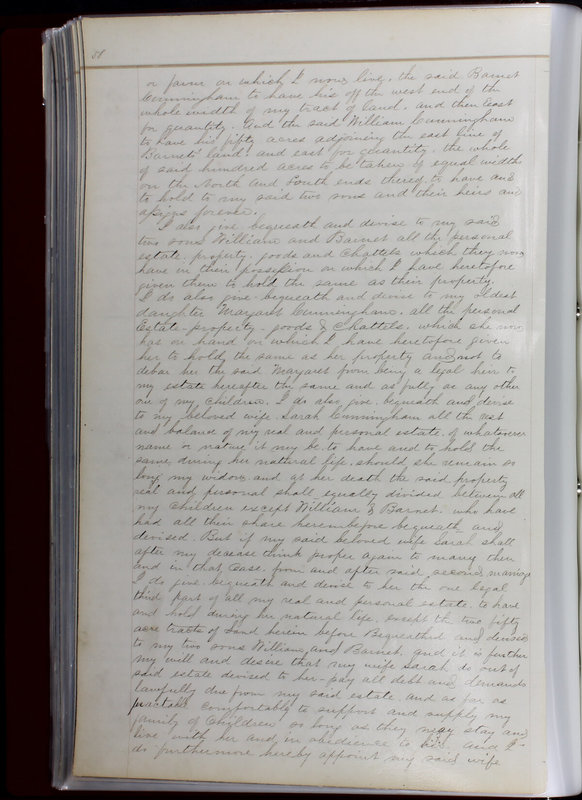 58
or farm on which I now live. the said Barnet
Cunningham to have his off the west end of the
whole width of my tract of land. and then east
for quantity. And the said William Cunningham
to have his fifty acres adjoining the east line of
Barnets land. and east for quantity. the whole
of said hundred acres to be taken of equal widths
on the North and South ends thereof, to have and
to hold to my said two sons and their heirs and
assigns forever.
I also give bequeath and devise to my said
two sons William and Barnet all the personal
estate, property, goods and Chattels which they now
have in their possession or which I have heretofore
given them to hold the same as their property.
I do also give bequeath and devise to my oldest
daughter Margaret Cunningham, all the personal
Estate - property - goods & Chattels, which she now
has on hand or which I have heretofore given
her to hold the same as her property and not to
debar her the said Margaret from being a legal heir to
my estate hereafter the same and as fully as any other
one of my children. I do also give. bequeath and devise
to my beloved wife Sarah Cunningham all the rest
and balance of my real and personal estate. of whatsoever
name or nature it may be. to have and to hold the
same during her natural life, should she remain so
long my widow. and at her death the said property
real and personal shall equally divided between all
my children except William & Barnet. who have
had all their share hereinbefore bequeath and
devised. But if my said beloved wife Sarah shall
after my decease think proper again to marry then
and in that case. from and after said second marriage
I do give. bequeath and devise to her the one legal
third part of all my real and personal estate. to have
and hold during her natural life. except the two fifty
acre tracts of land herein before Bequeathed and devised
to my two sons William and Barnet. and it is further
my will and desire that my wife Sarah do out of
said estate devised to her - pay all debt and demands
lawfully due from my said estate. and as far as
practical comfortably to support and supply my
family of Children so long as they may stay and
live with her and in obedience to her. And I
do furthermore hereby appoint my said wife